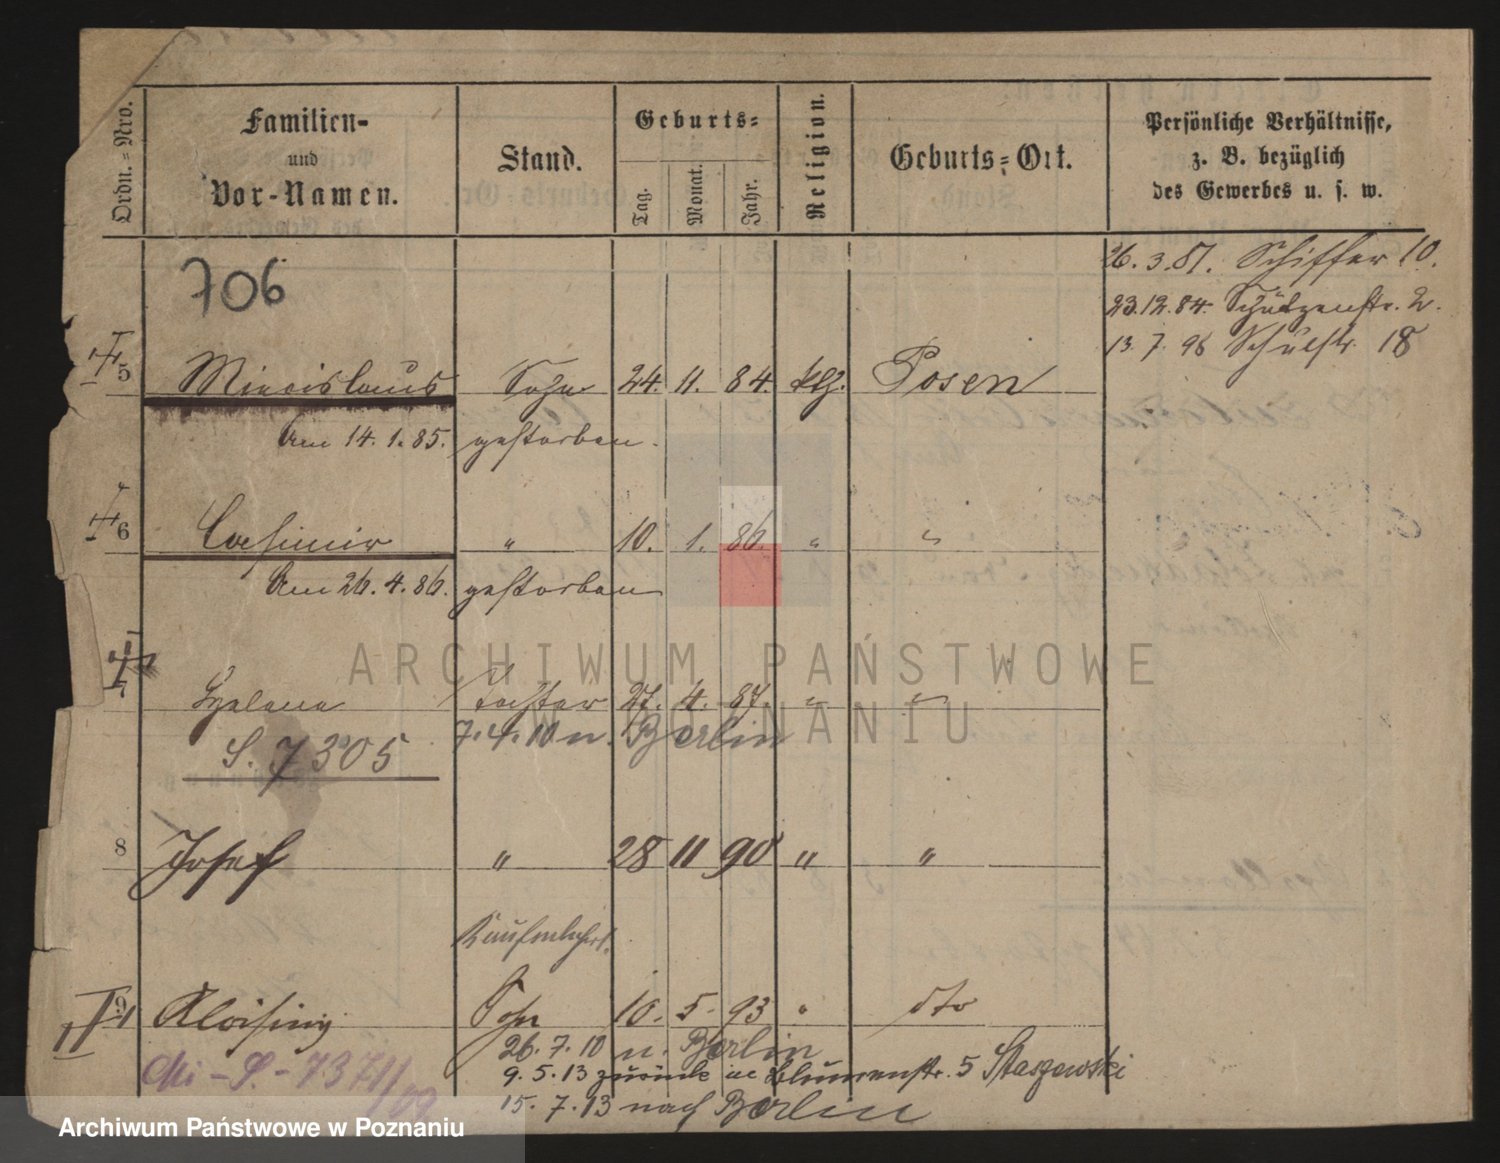 Ordn.=Nro.
Familien-
und
Vor-Namen.
Stand.
Geburts=
Tag.
Monat.
Jahr.
Religion.
Geburts=Ort.
Persönliche Verhältnisse,
z. B. bezüglich
des Gewerbes u. s. w.
26. 3. 81. Schifferstr. 10.
23.12.84. Schützenstr. 2.
13. 7. 96 Schulstr. 18
706
5 Miecislaus Sohn 24. 11. 84. kth. Posen
Am 14. 1. 85. gestorben.
6 Casimir " 10. 1. 86. " "
Am 26. 4. 86. gestorben
7 Helena Tochter 27. 4. 87. " "
7. 4. 10 n. Berlin
S. 7305
8 Josef " 28 11 90 " "
9 Aloisius Sohn 10. 5. 93 " dto
26. 7. 10 n. Berlin
9. 5. 13 zurück Blumenstr. 5 Staszewski
Mi-S.-7371/09
15. 7. 13 nach Berlin
ARCHIWUM PAŃSTWOWE
W POZNANIU
Archiwum Państwowe w Poznaniu